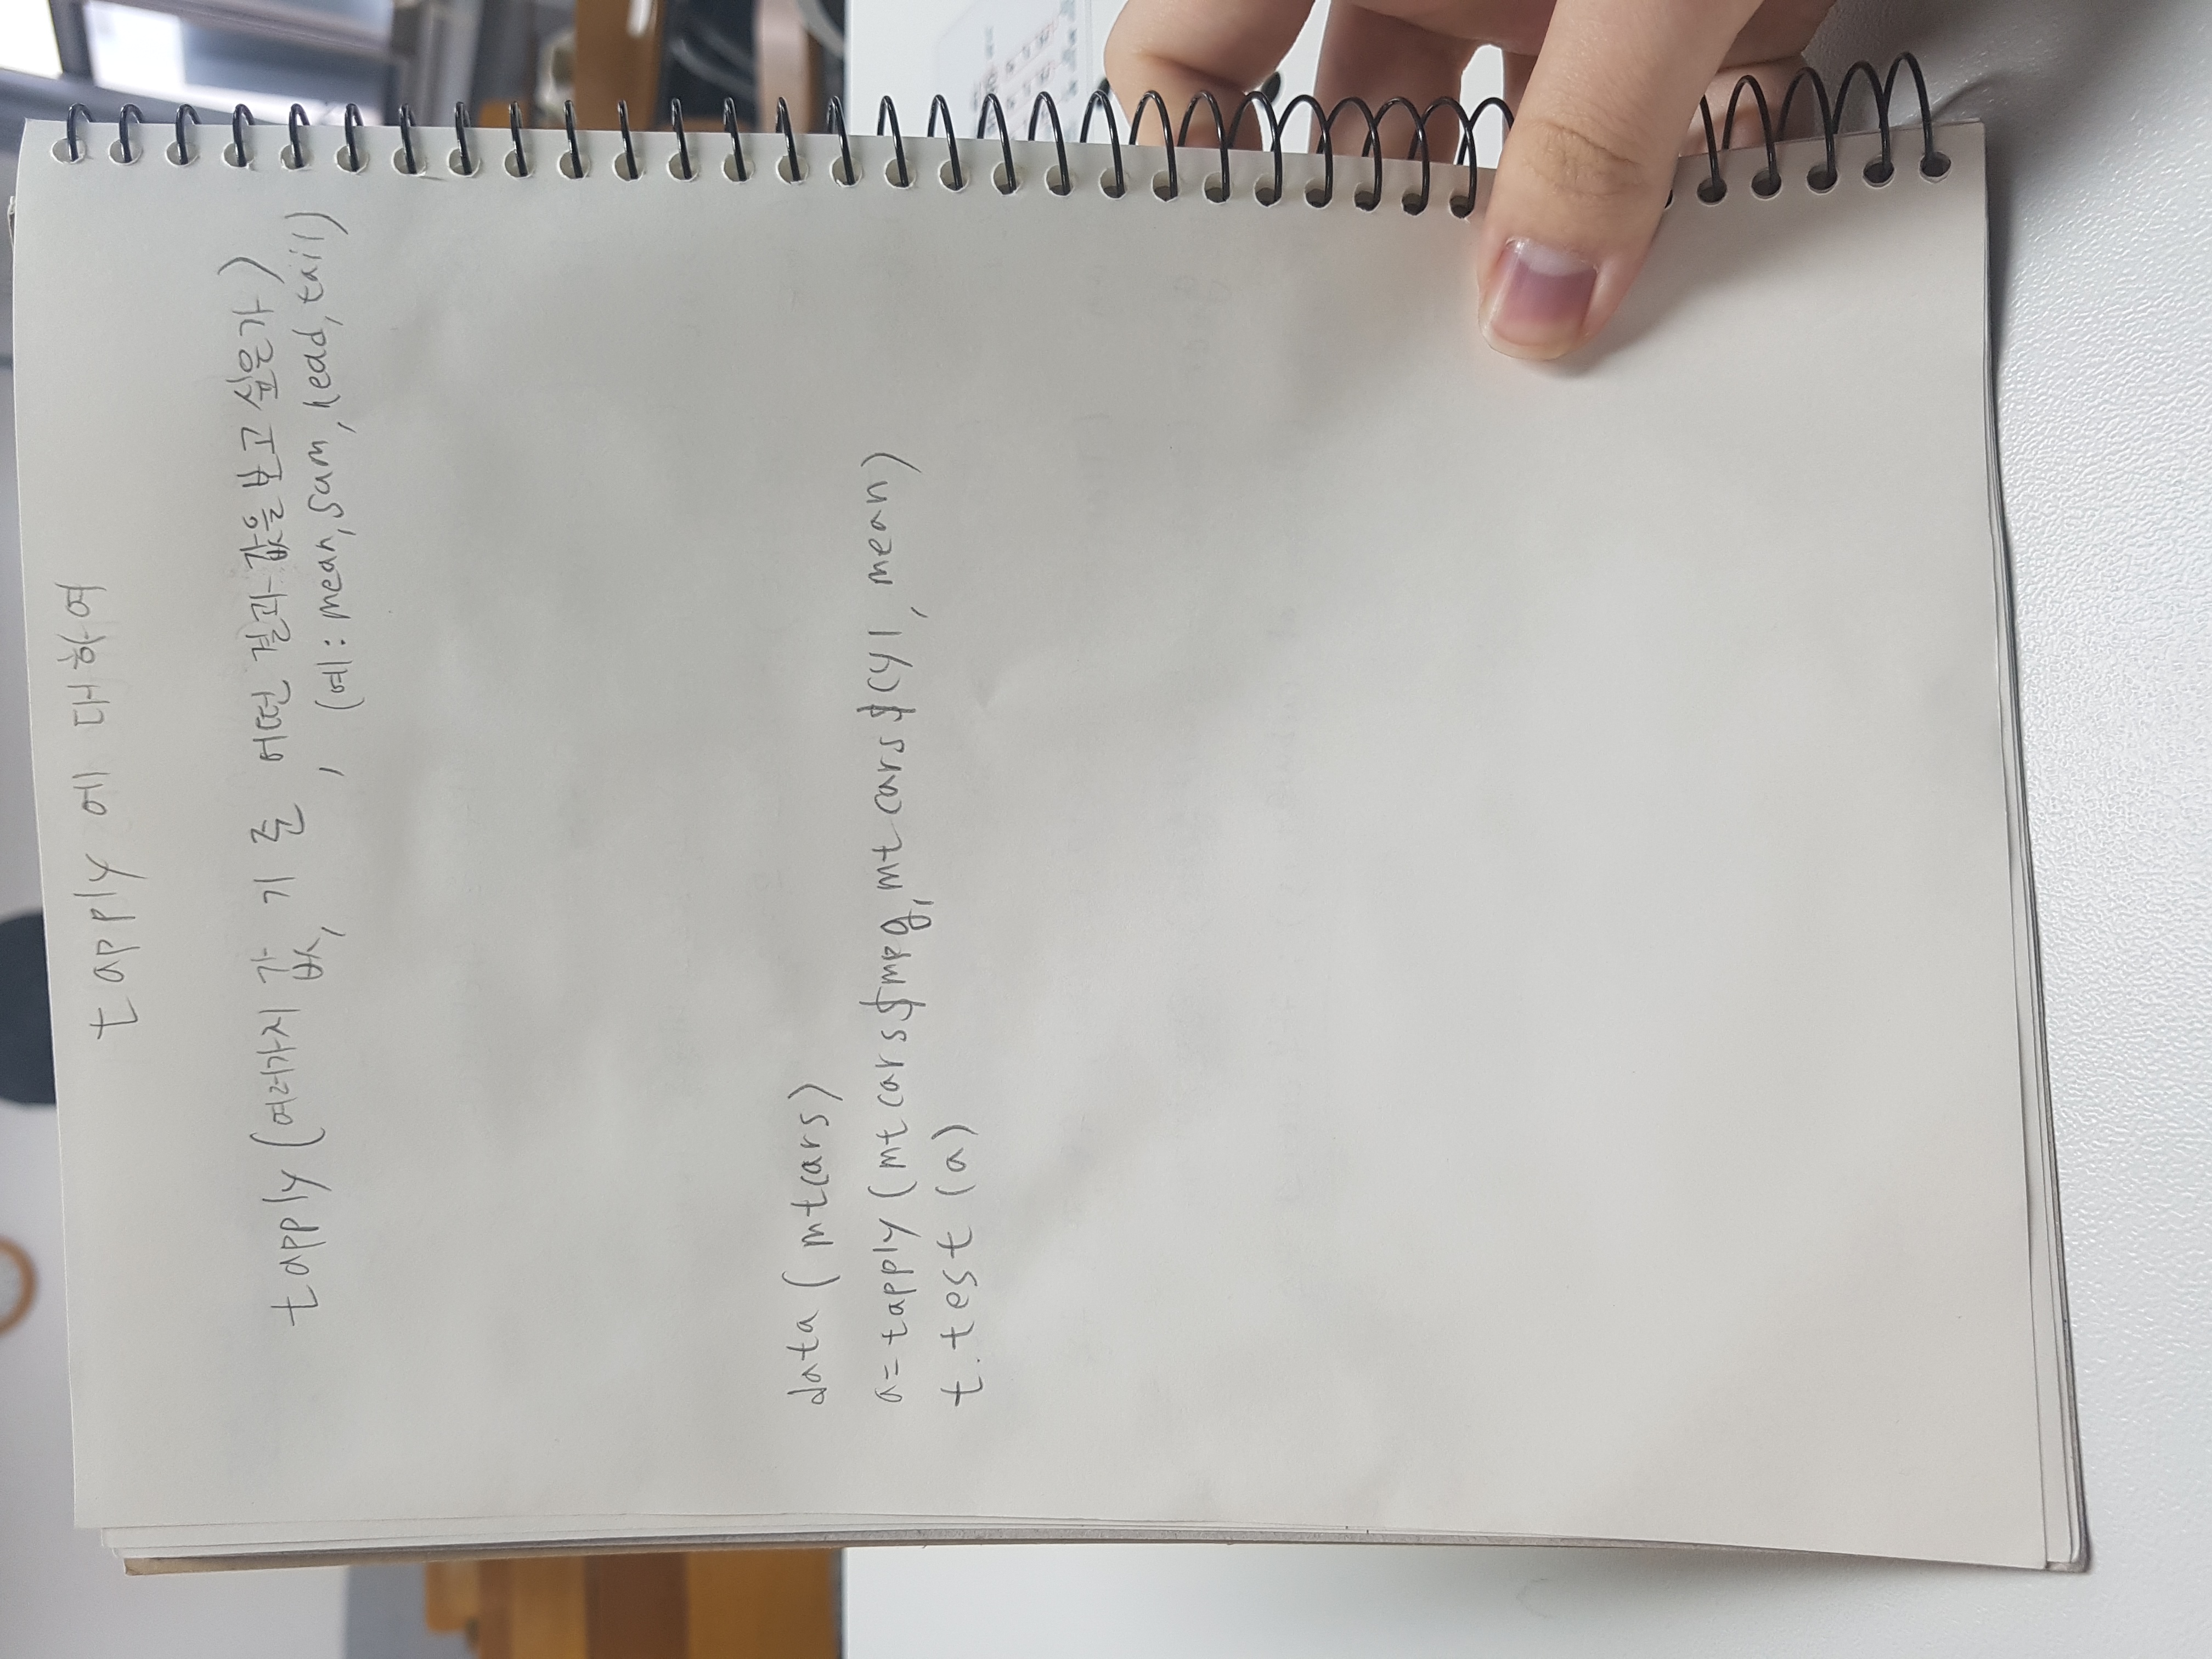 tapply 에 대하여
tapply (여러가지 값, 기준, 어떤 결과 값을 보고 싶은가)
(예: mean, sum, head, tail)
data (mtcars)
a= tapply (mtcars$mpg, mtcars$cyl, mean)
t.test (a)